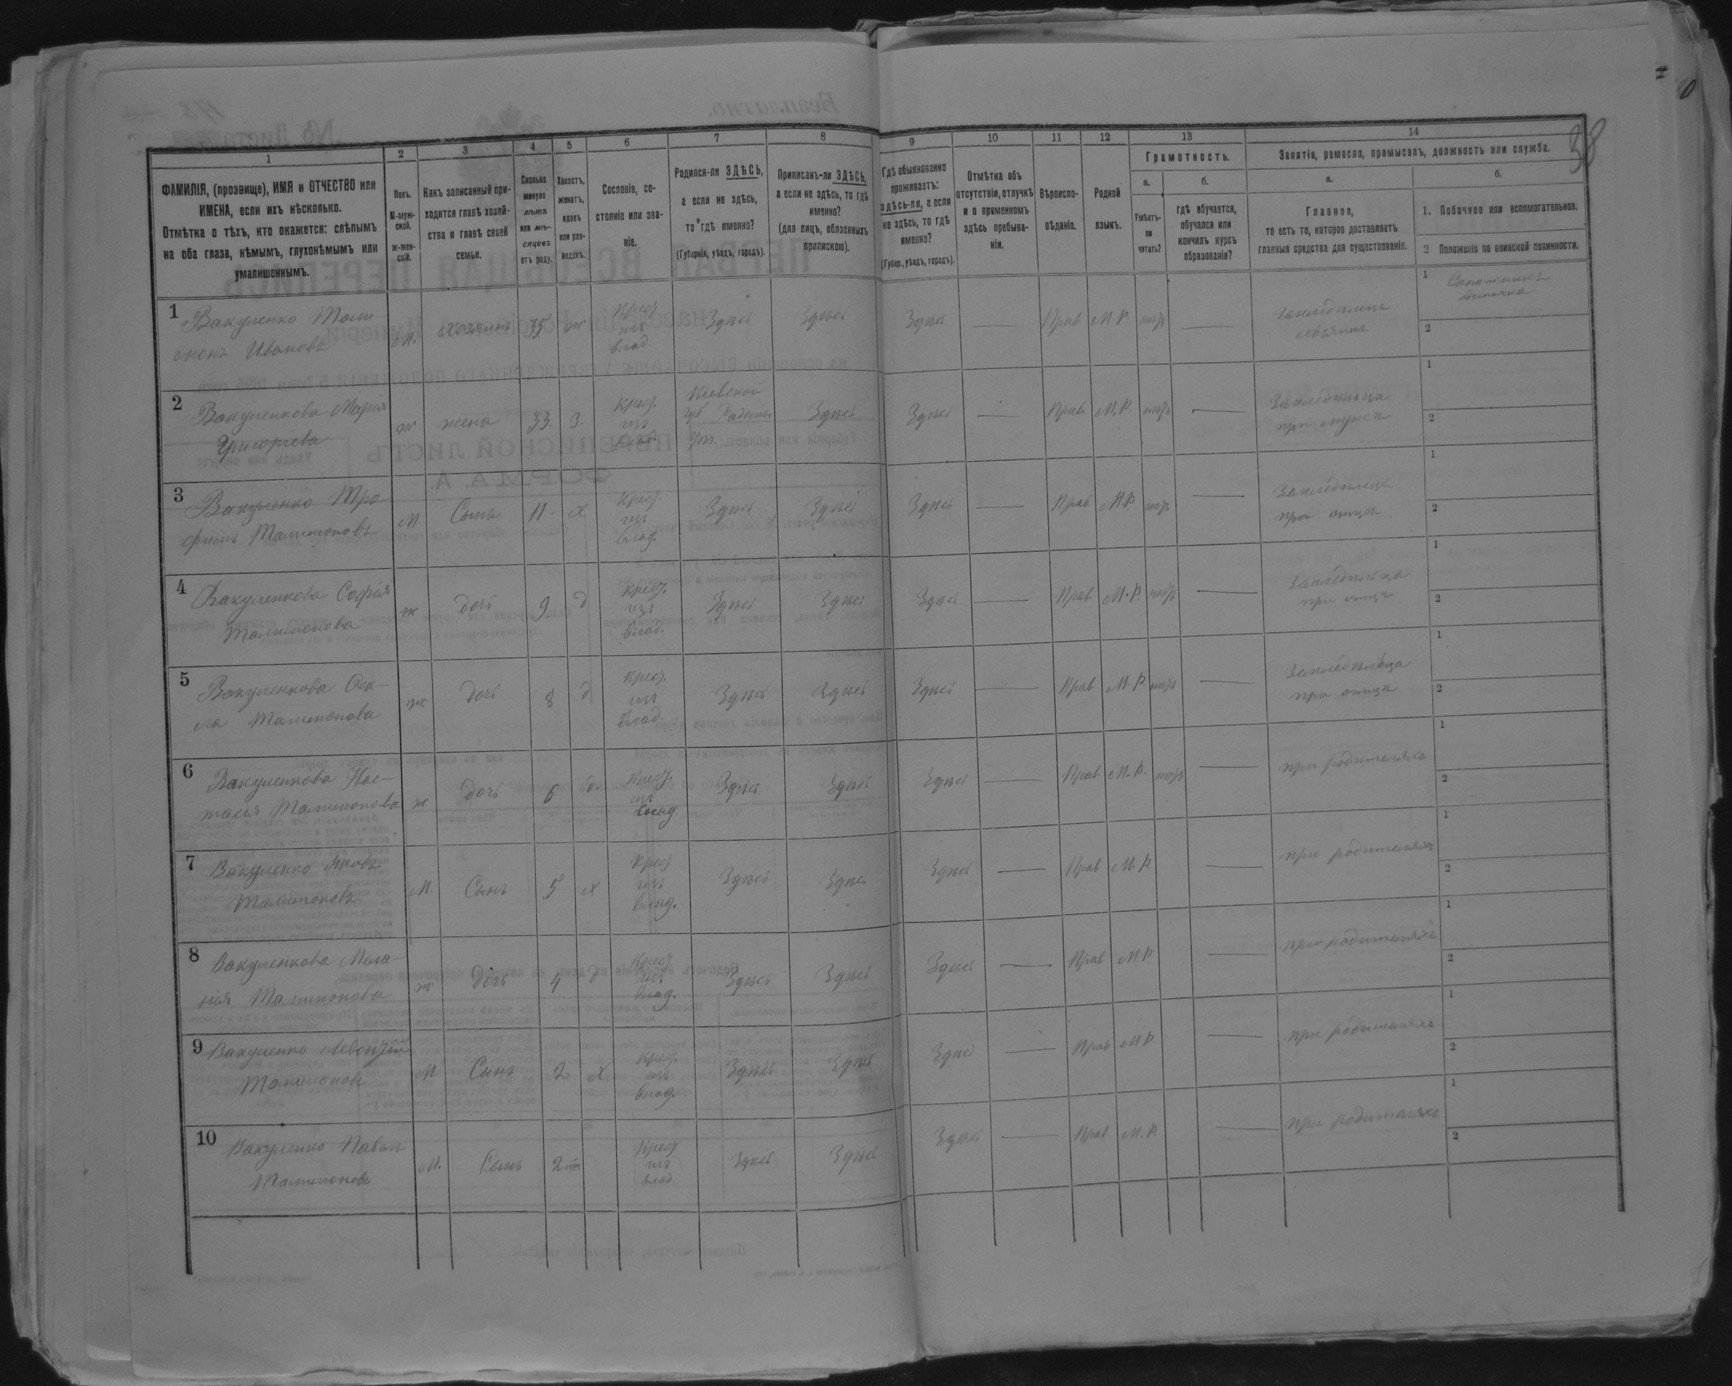 38
1 2 3 4 5 6 7 8 9 10 11 12 13 14
ФАМИЛІЯ, (прозвище), ИМЯ и ОТЧЕСТВО или
ИМЕНА, если ихъ нѣсколько.
Отмѣтка о тѣхъ, кто окажется: слѣпымъ
на оба глаза, нѣмымъ, глухонѣмымъ или
умалишеннымъ.
Полъ.
М-муж-
ской.
ж-жен-
скій.
Какъ записанный при-
ходится главѣ хозяй-
ства и главѣ своей
семьи.
Сколько
минуло
лѣтъ
или мѣ-
сяцевъ
отъ роду.
Холостъ,
женатъ,
вдовъ
или раз-
веденъ.
Сословіе, со-
стояніе или зва-
ніе.
Родился-ли ЗДѢСЬ,
а если не здѣсь,
то гдѣ именно?
(Губернія, уѣздъ, городъ).
Приписанъ-ли ЗДѢСЬ,
а если не здѣсь, то гдѣ
именно?
(для лицъ, обязанныхъ
припискою).
Гдѣ обыкновенно
проживаетъ:
здѣсь-ли, а если
не здѣсь, то гдѣ
именно?
(Губер., уѣздъ, городъ).
Отмѣтка объ
отсутствіи, отлучкѣ
и о временномъ
здѣсь пребыва-
ніи.
Вѣроиспо-
вѣданіе.
Родной
языкъ.
Грамотность.
а.
Умѣетъ-
ли
читать?
б.
гдѣ обучается,
обучался или
кончилъ курсъ
образованія?
Занятіе, ремесло, промыселъ, должность или служба.
а.
Главное,
то есть то, которое доставляетъ
главныя средства для существованія.
б.
1. Побочное или вспомогательное.
2 Положеніе по воинской повинности.
1 Вакуленко Тали- М. хозяинъ 35 ж Крест. изъ влад. Здѣсь Здѣсь Здѣсь — Прав М.Р. нѣтъ — Земледѣлецъ хозяинъ 1
монъ Ивановъ 2
2 Вакуленкова Марія ж жена 33. з. Крест. изъ влад. Кіевской губ Здѣсь Здѣсь — Прав. М.Р. нѣтъ — при мужѣ 1
Григорьева 2
3 Вакуленко Тро- М Сынъ 11. х Крест. изъ влад. Здѣсь Здѣсь Здѣсь — Прав М.Р. нѣтъ — при отцѣ 1
фимъ Талимоновъ 2
4 Вакуленкова Софія ж дочь 9. д Крест. изъ влад. Здѣсь Здѣсь Здѣсь — Прав. М.Р. нѣтъ — при отцѣ 1
Талимонова 2
5 Вакуленкова Фек- ж дочь 8 д Крест. изъ влад. Здѣсь Здѣсь Здѣсь — Прав М.Р. нѣтъ — при отцѣ 1
ла Талимонова 2
6 Вакуленкова Нас- ж дочь 6 д. Крест. изъ влад. Здѣсь Здѣсь Здѣсь — Прав М.Р. нѣтъ — при родителяхъ 1
тасія Талимонова 2
7 Вакуленко Яковъ М. Сынъ 5 х Крест изъ влад. Здѣсь Здѣсь Здѣсь — Прав М.Р. — при родителяхъ 1
Талимоновъ 2
8 Вакуленкова Мала- ж дочь 4 д Крест изъ влад. Здѣсь Здѣсь Здѣсь — Прав М.Р. — при родителяхъ 1
нія Талимонова 2
9 Вакуленко Левонтій М Сынъ 2 х Крест. изъ влад. Здѣсь Здѣсь Здѣсь — Прав М.Р. — при родителяхъ 1
Талимоновъ 2
10 Вакуленко М. Сынъ Крест изъ влад Здѣсь Здѣсь Здѣсь — Прав. М.Р. — при родителяхъ 1
Талимоновъ 2